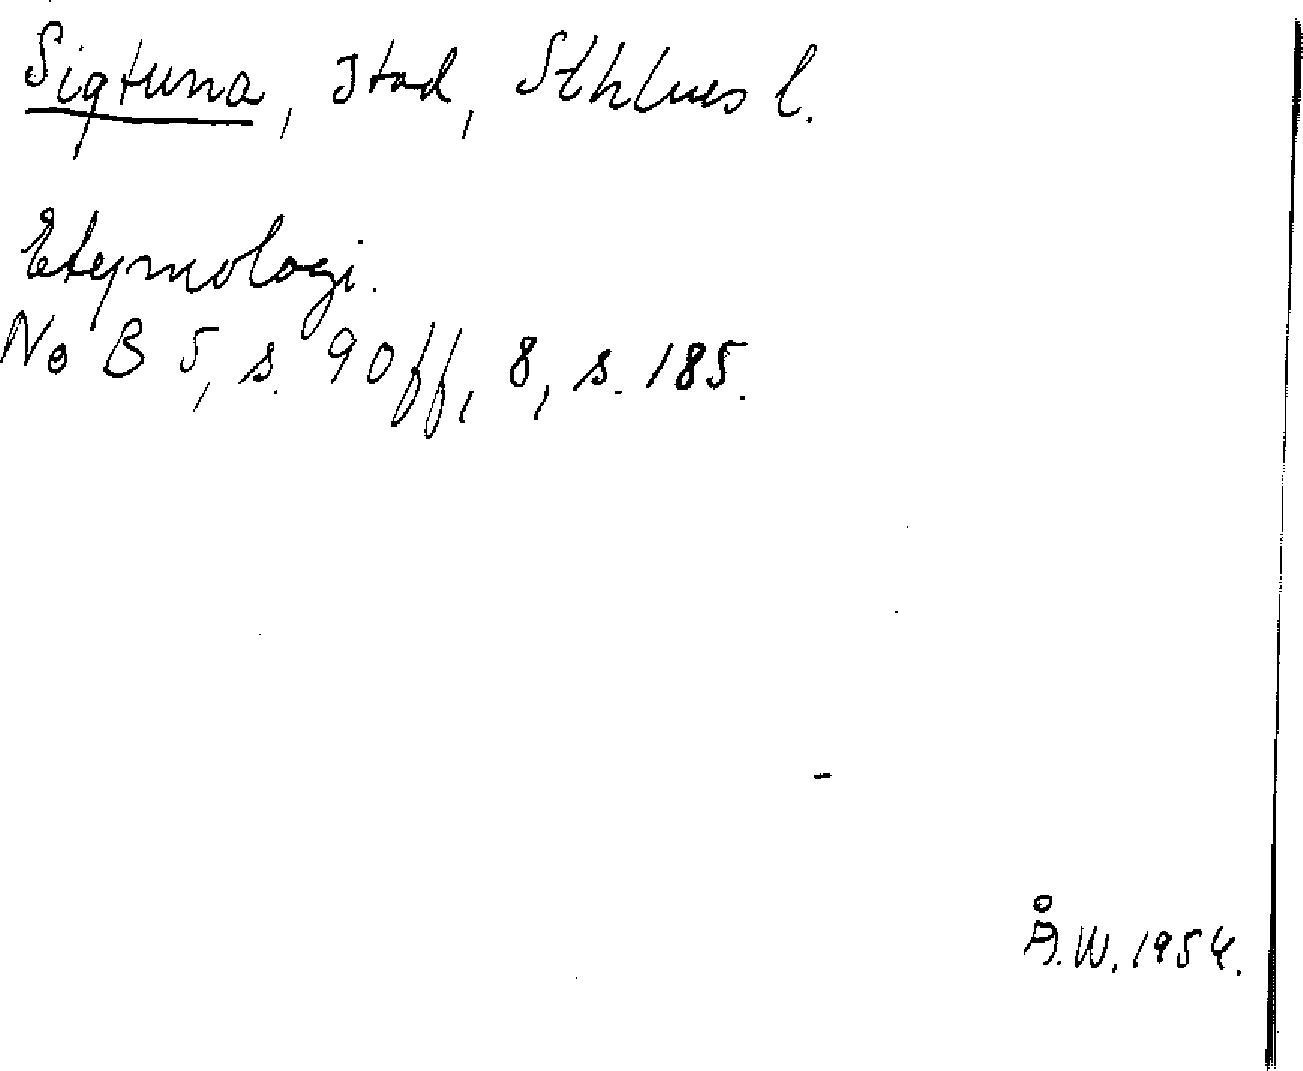 Sigtuna, stad, Sthlms l.
Etymologi.
NoB 5, s. 90ff, 8, s. 185.
Å.W. 1954.